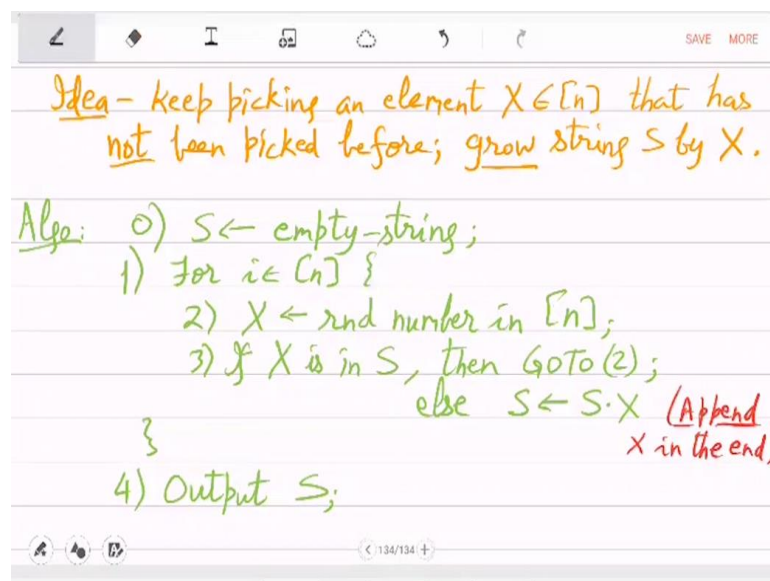 SAVE MORE
Idea - keep picking an element X ∈ [n] that has
not been picked before; grow string S by X.
Algo: 0) S ← empty-string;
1) For i ∈ [n] {
2) X ← rnd number in [n];
3) If X is in S, then GOTO (2);
else S ← S·X (Append
X in the end,
}
4) Output S;
134/134